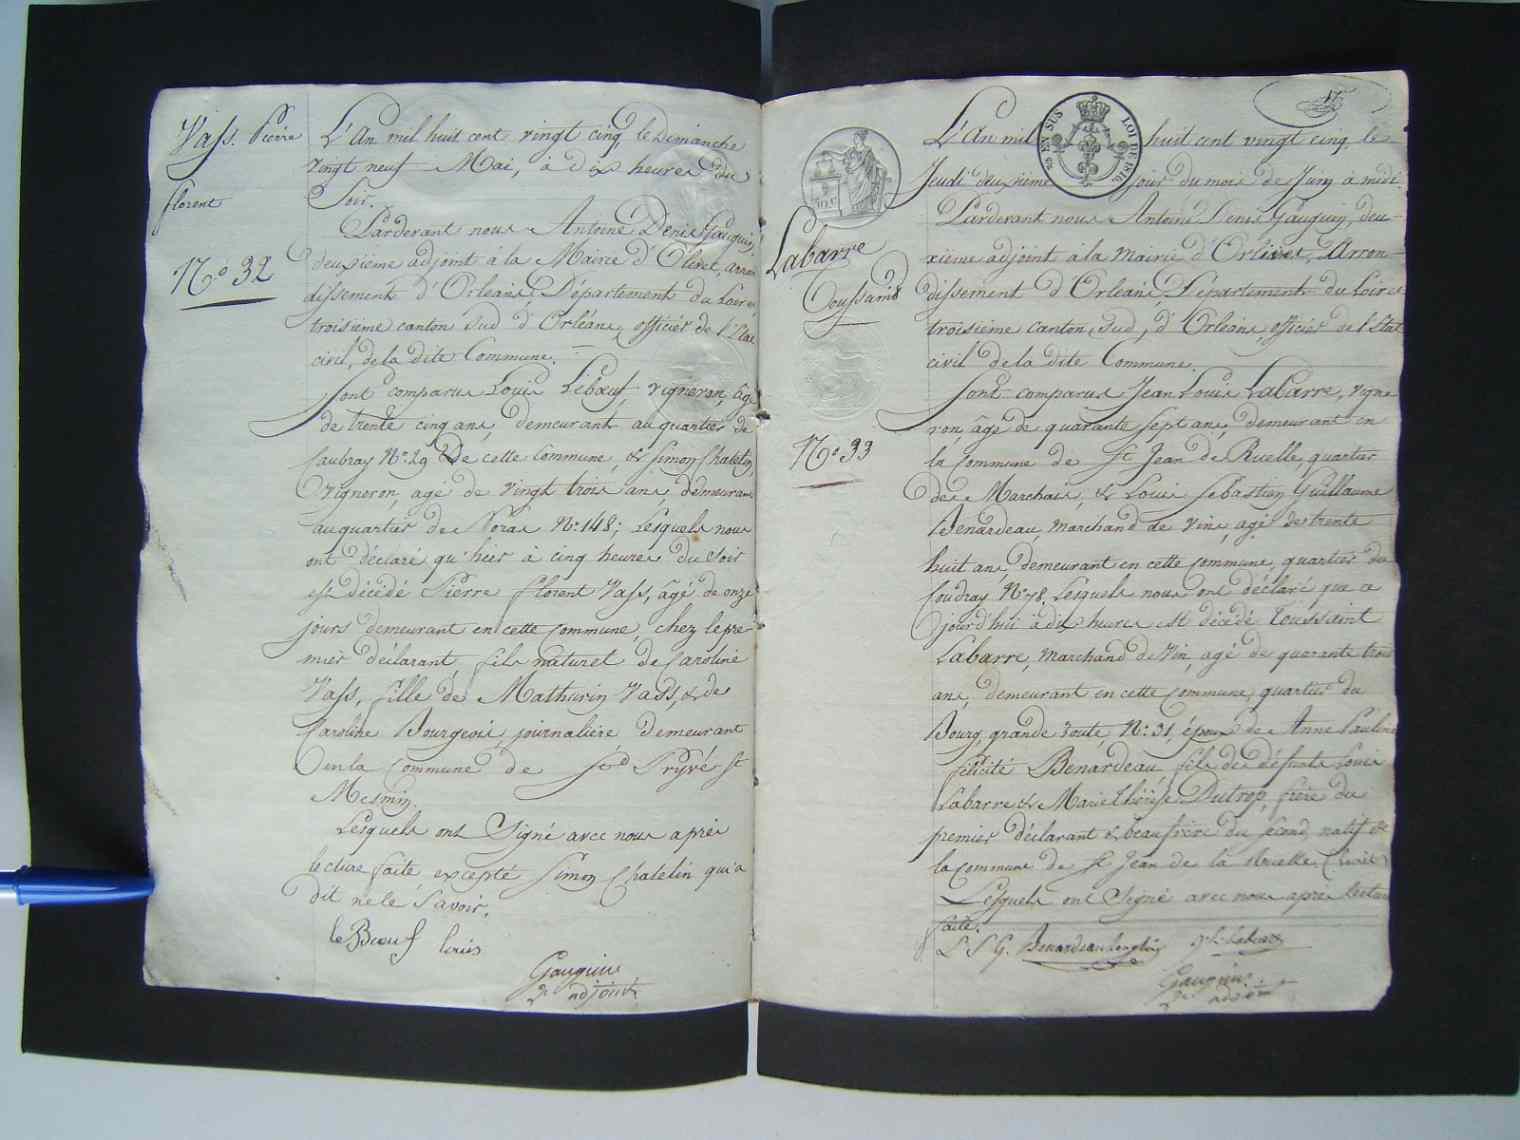 Vass. Pierre
florent
N.o 32
L'An mil huit cent vingt cinq, le Dimanche
vingt neuf Mai, à dix heures du
Soir.
Pardevant nous Antoine Denis Gauguin,
deuxième adjoint à la Mairie d'Olivet, arron
dissement d'Orléans Département du Loiret,
troisième canton Sud d'Orléans, officier de l'Etat
civil, de la dite Commune.
Sont comparus Louis Lebœuf, vigneron, âgé
de trente cinq ans, demeurant au quartier de
Caubray N.o 29 De cette Commune, & Simon Chatelin,
Vigneron, agé de vingt trois ans, demeurant
au quartier de N.o 148; Lesquels nous
ont déclaré qu'hier à cinq heures du soir
est décédé Pierre florent Vass, agé de onze
jours demeurant en cette commune, chez le pre-
mier déclarant, fils naturel de Caroline
Vass, fille de Mathurin Vass, & de
Caroline Bourgeois, journalière demeurant
en la Commune de St Pryvé St
Mesmin.
Lesquels ont Signé avec nous après
lecture faite, excepté Simon Chatelin qui a
dit ne le Savoir.
le Bœuf louis
Gauguin
2e adjoint
Labarre
Toussaint
N.o 33
EN SUS LOI DE 1816
L'An mil huit cent vingt cinq, le
Jeudi deuxième jour du mois de Juin à midi.
Pardevant nous Antoine Denis Gauguin, deu-
xième adjoint à la Mairie d'Orlivet, Arron-
dissement d'Orléans, Département du Loiret
troisième canton, Sud, d'Orléans, officier de l'Etat
civil de la dite Commune.
Sont comparus Jean Louis Labarre, vigne
ron, âgé de quarante sept ans, demeurant en
la Commune de St Jean de Ruelle, quartier
des Marchais, & Louis Sebastien Guillaume
Benardeau, marchand de vins, agé de trente
huit ans, demeurant en cette commune, quartier du
Coudray N.o 78. Lesquels nous ont déclaré que ce
jourd'hui à dix heures est décédé Toussaint
Labarre, marchand de vin, agé de quarante trois
ans, demeurant en cette commune, quartier du
Bourg, grande route, N.o 31, époux de Anne Pauline
félicité Benardeau fils de défunts Louis
Labarre & Marie Thérèse Dutrop, frère du
premier déclarant & beaufrère du second, natif de
la commune de St Jean de la Ruelle (Loiret)
Lesquels ont Signé avec nous après lecture
faite.
L. S. G. Benardeau Langlois J. L. Labarre
Gauguin
2e adjoint